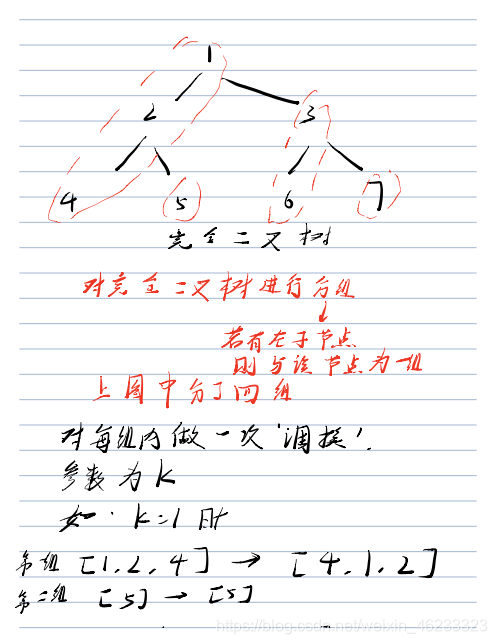 1
2 3
4 5 6 7
完全二叉树
对完全二叉树进行分组
↓
若有左子节点
则与该节点为一组
上图中分了四组
对每组内做一次'调换'.
参数为K
如. K=1时
第一组 [1,2,4] → [4,1,2]
第二组 [5] → [5]
https://blog.csdn.net/weixin_46233323